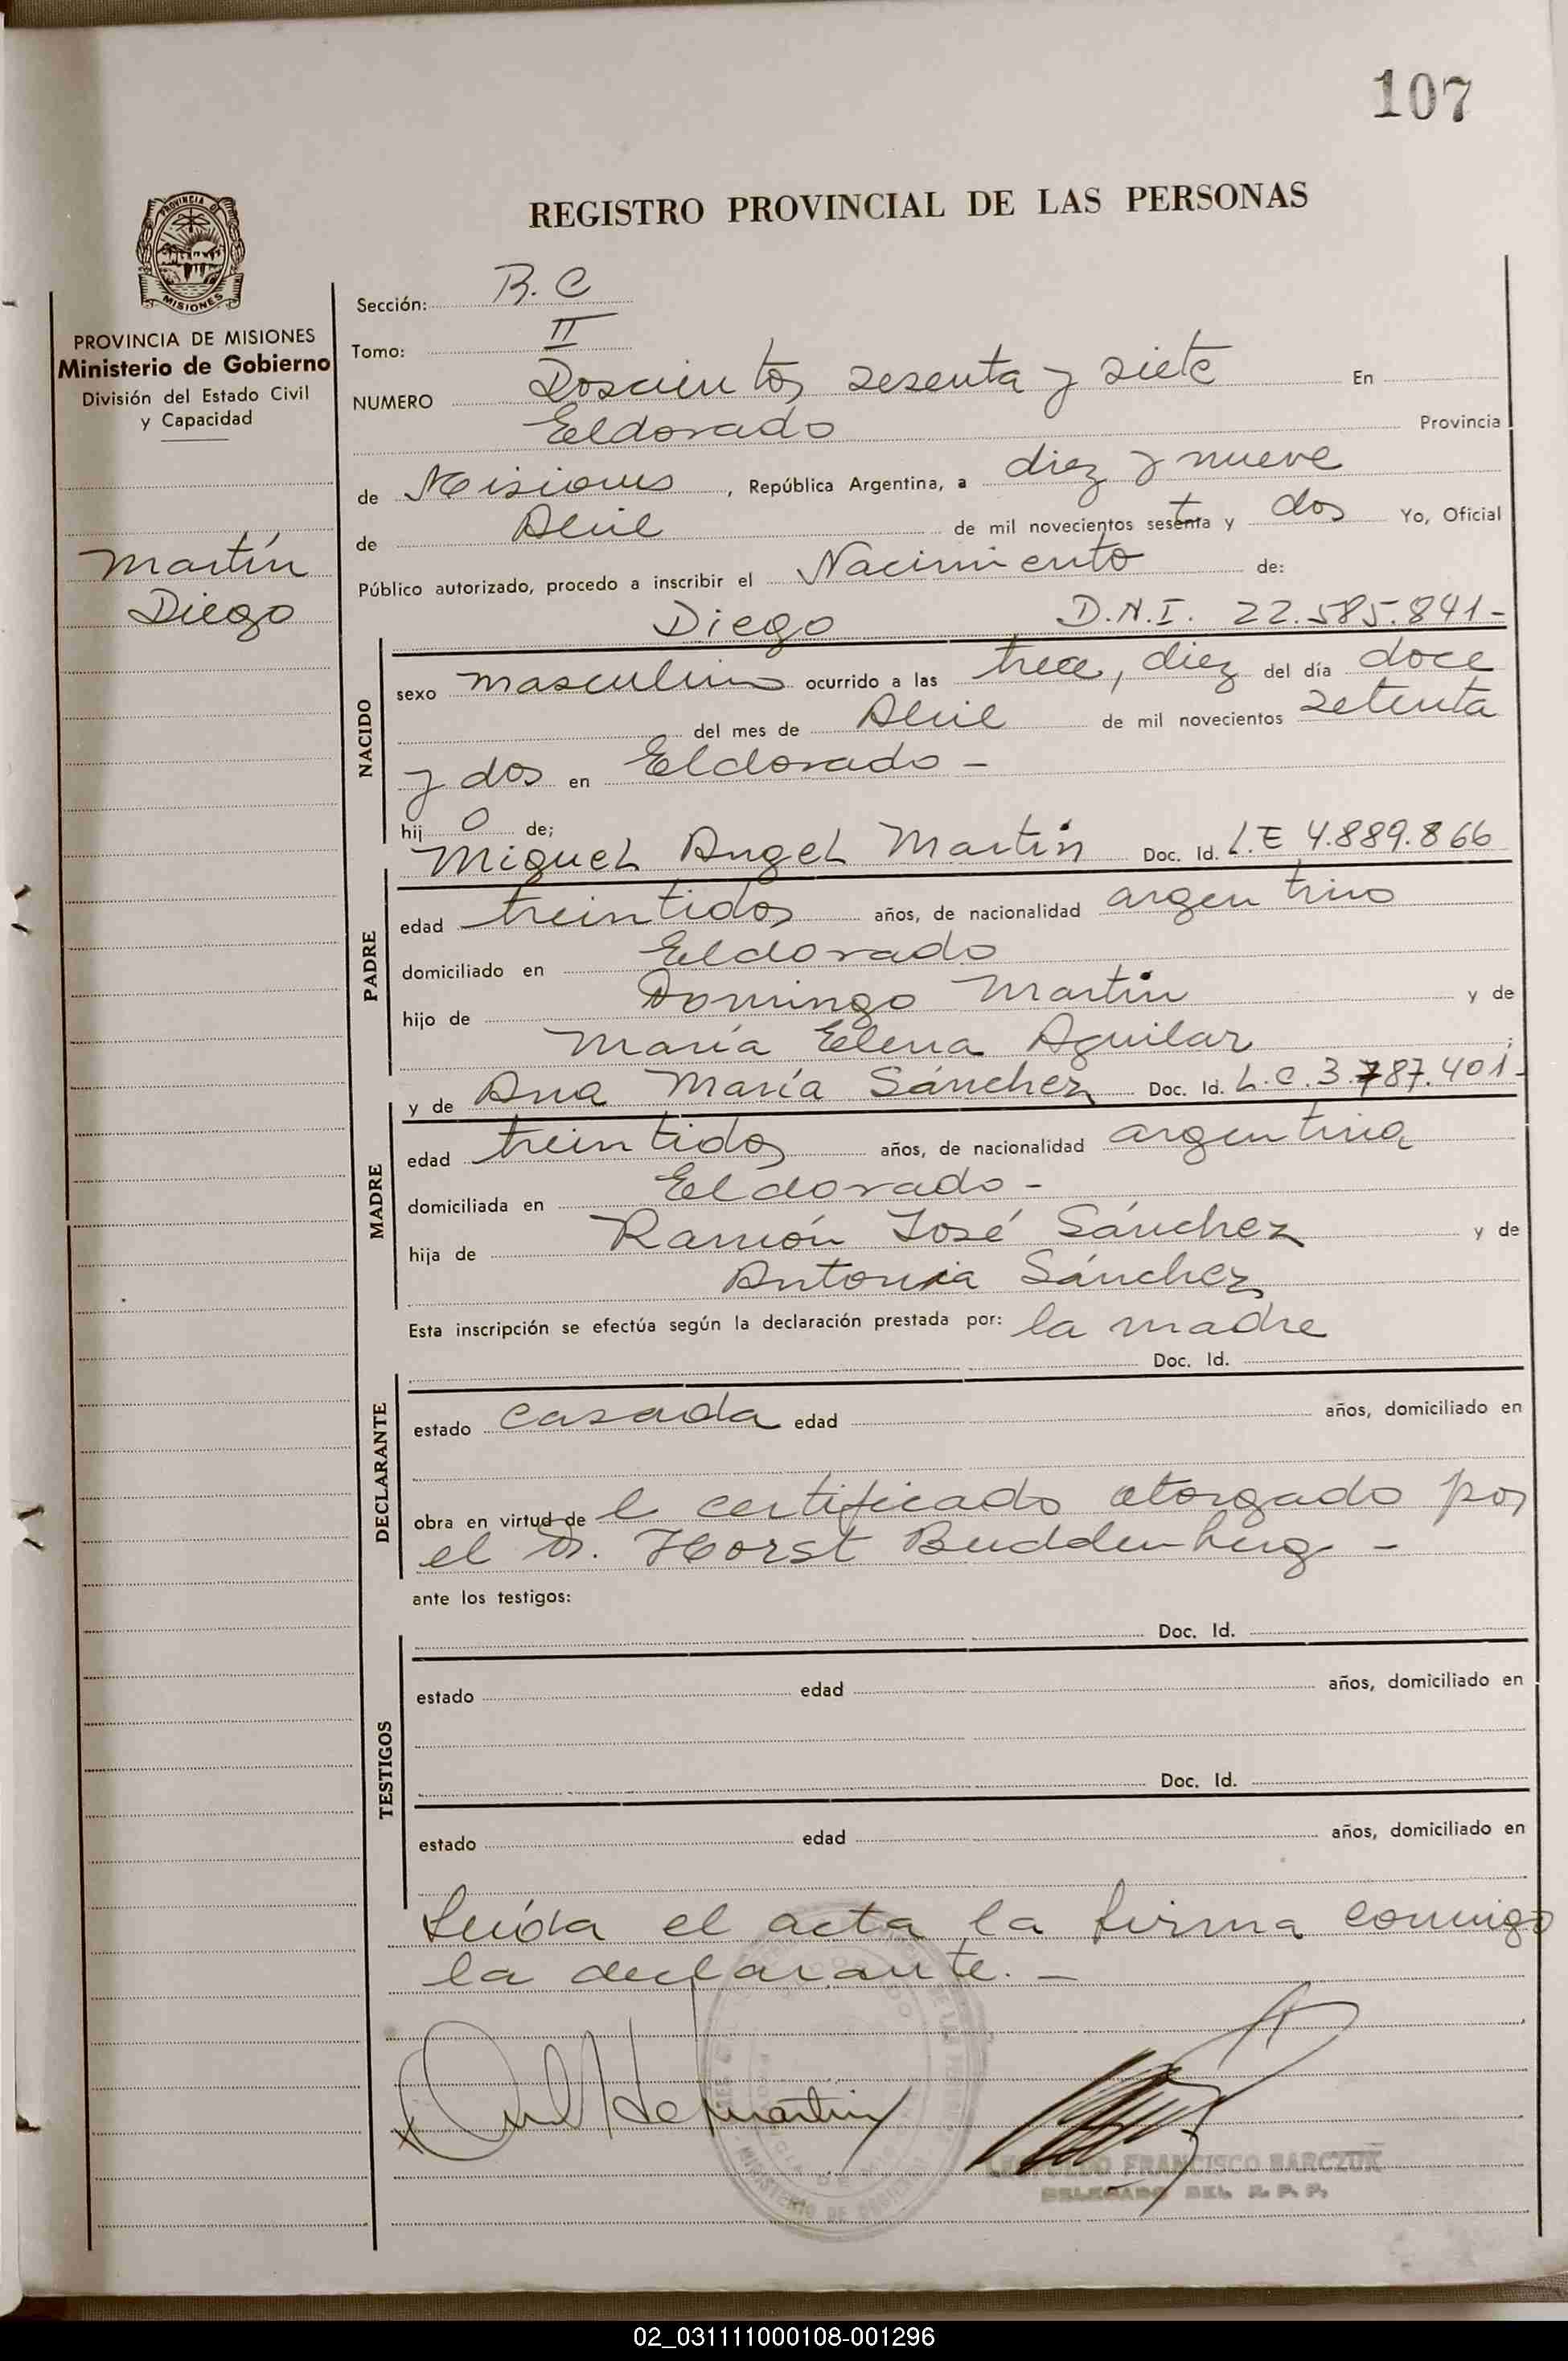 107
REGISTRO PROVINCIAL DE LAS PERSONAS
PROVINCIA DE MISIONES
PROVINCIA DE MISIONES
Ministerio de Gobierno
División del Estado Civil
y Capacidad
Martín
Diego
Sección: R.C
Tomo: II
NUMERO Doscientos sesenta y siete En
Eldorado Provincia
de Misiones, República Argentina, a diez y nueve
de Abril de mil novecientos setenta y dos Yo, Oficial
Público autorizado, procedo a inscribir el Nacimiento de:
Diego D.N.I. 22.585.841-
NACIDO
sexo masculino ocurrido a las trece, diez del día doce
del mes de Abril de mil novecientos setenta
y dos en Eldorado -
hij o de;
Miguel Angel Martín Doc. Id. L.E 4.889.866
PADRE
edad treintidos años, de nacionalidad argentino
domiciliado en Eldorado
hijo de Domingo Martin y de
María Elena Aguilar ;
y de Ana María Sánchez Doc. Id. L.C. 3.787.401-
MADRE
edad treintidos años, de nacionalidad argentina
domiciliada en Eldorado -
hija de Ramón José Sánchez y de
Antonia Sánchez
Esta inscripción se efectúa según la declaración prestada por: la madre
Doc. Id.
DECLARANTE
estado casada edad años, domiciliado en
obra en virtud de l certificado otorgado por
el Dr. Horst Buddenberg -
ante los testigos:
Doc. Id.
TESTIGOS
estado edad años, domiciliado en
Doc. Id.
estado edad años, domiciliado en
Leída el acta la firma conmigo
la declarante. -
de Martin
FRANCISCO BARCZUK
DELEGADO DEL R. P. P.
MINISTERIO DE GOBIERNO
02_031111000108-001296